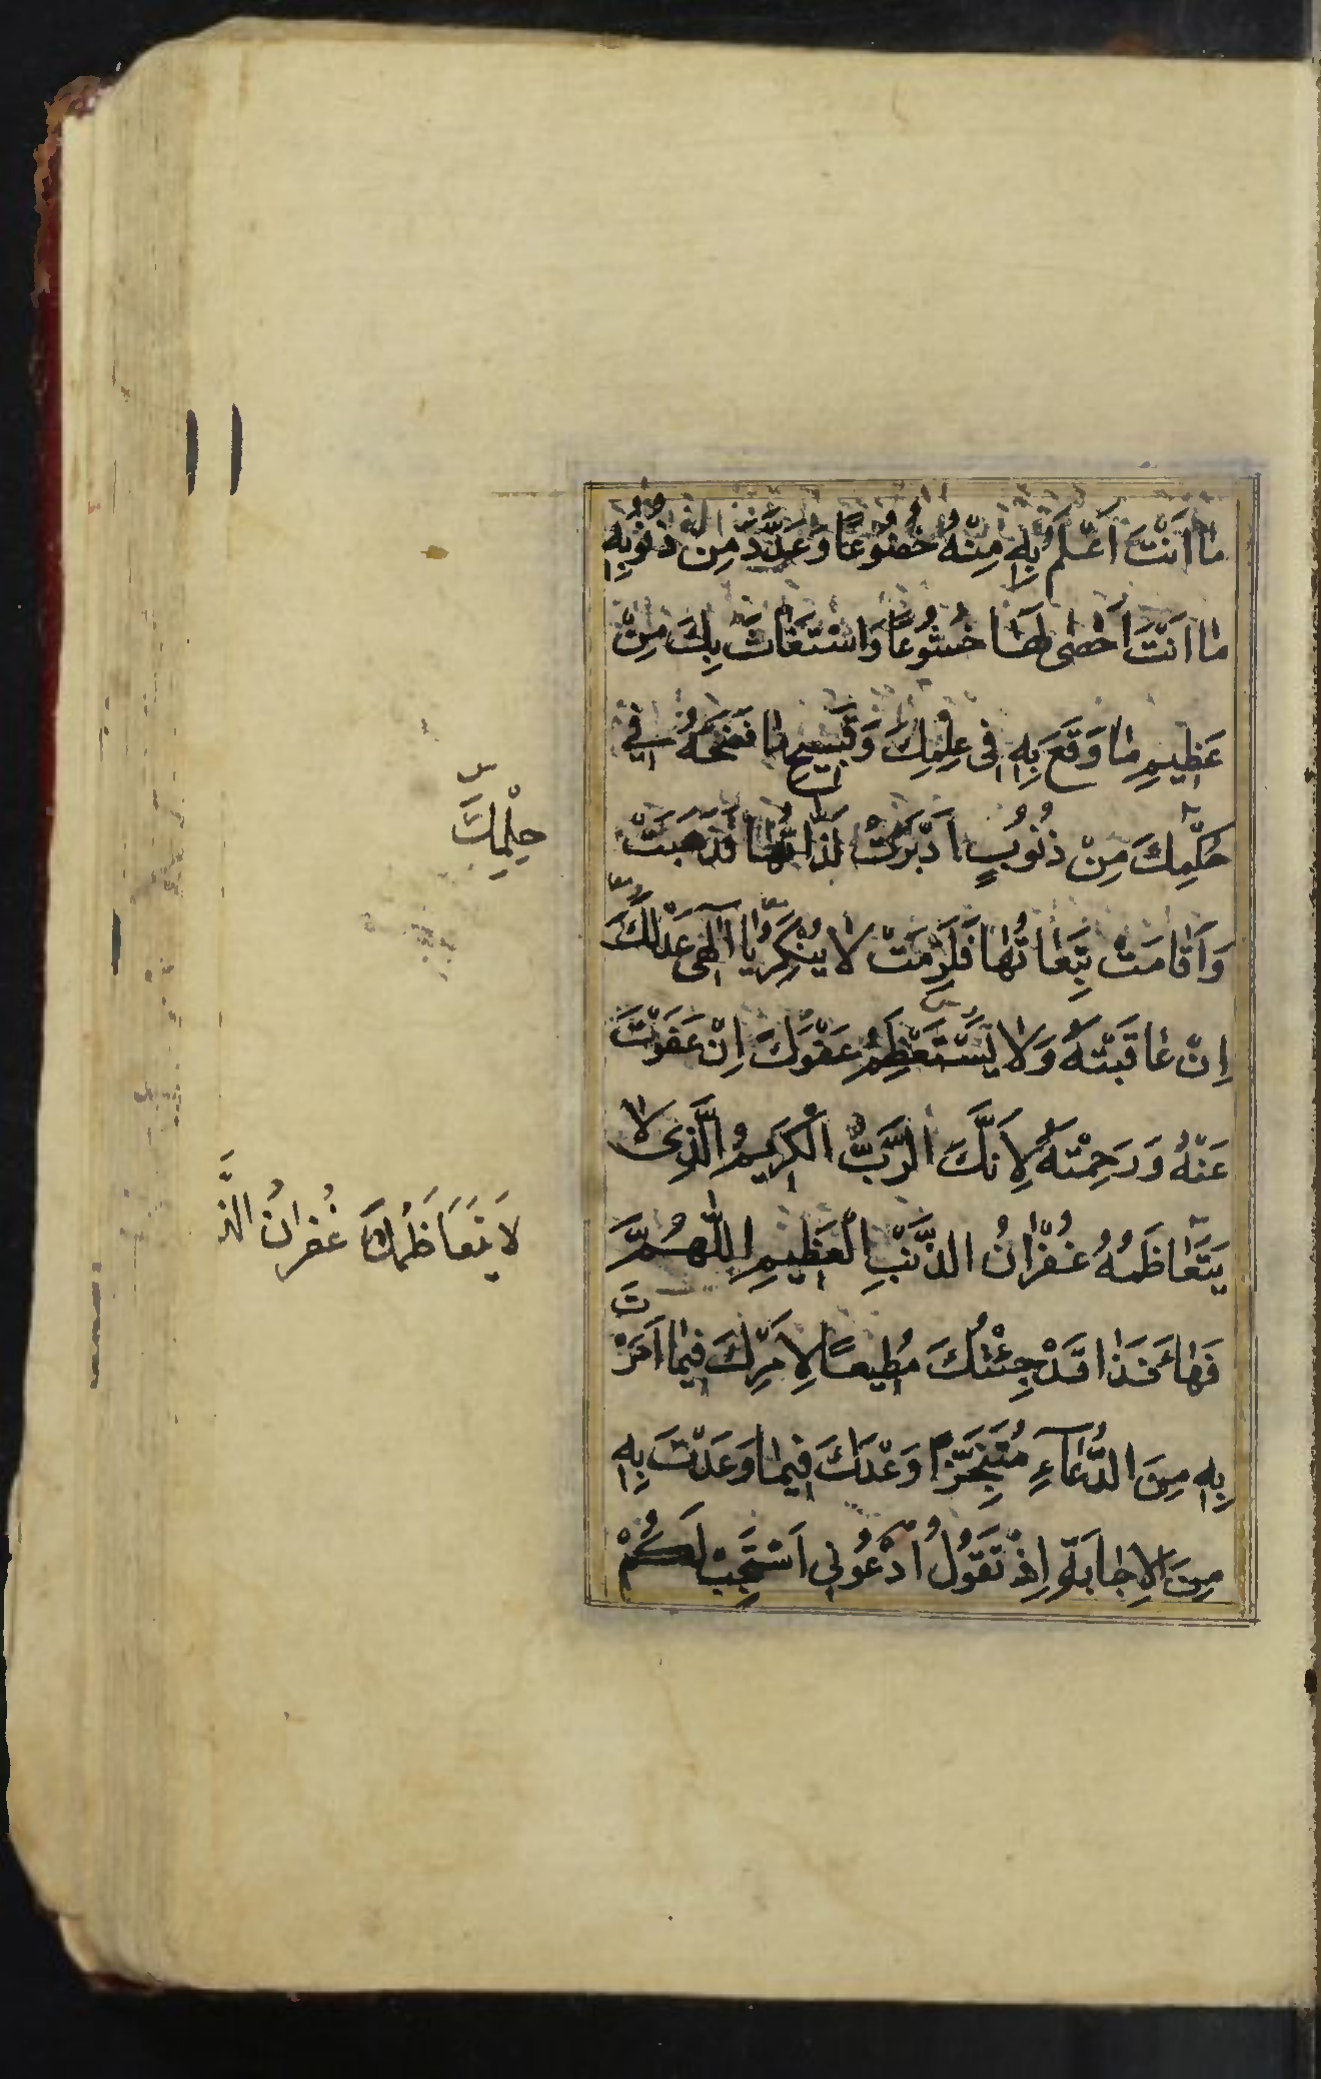 مٰا اَنْتَ اَعْلَمُ بِهِ مِنْهُ خُضُوْعًا وَعَدَّدَ مِنْ ذُنُوْبِهِ
مٰا اَنْتَ اَحْصٰى لَهٰا خُشُوْعًا وَاسْتَغٰاثَ بِكَ مِنْ
عَظِيْمِ مٰا وَقَعَ بِهِ فِى عِلْمِكَ وَقَبِيْحِ مٰا فَضَحَهُ فِي
حُكْمِكَ مِنْ ذُنُوْبٍ اَدْبَرَتْ لَذّٰاتُهٰا فَذَهَبَتْ
وَاَقٰامَتْ تَبِعٰاتُهٰا فَلَزِمَتْ لٰا يُنْكِرُ يٰا اِلٰهِى عَدْلَكَ
اِنْ عٰاقَبْتَهُ وَلٰا يَسْتَعْظِمُ عَفْوَكَ اِنْ عَفَوْتَ
عَنْهُ وَرَحِمْتَهُ لِاَنَّكَ الرَّبُّ الْكَرِيْمُ الَّذِى لٰا
يَتَعٰاظَمُهُ غُفْرٰانُ الذَّنْبِ الْعَظِيْمِ اللّٰهُمَّ
فَهٰا اَنَا ذٰا قَدْ جِئْتُكَ مُطِيْعًا لِاَمْرِكَ فِيْمٰا اَمَرْتَ
بِهِ مِنَ الدُّعٰآءِ مُتَنَجِّزًا وَعْدَكَ فِيْمٰا وَعَدْتَ بِهِ
مِنَ الْاِجٰابَةِ اِذْ تَقُوْلُ اُدْعُوْنِي اَسْتَجِبْ لَكُمْ
١١
حِلْمِكَ
لَا يَتَعَاظَمُكَ غُفْرَانُ الذَّ